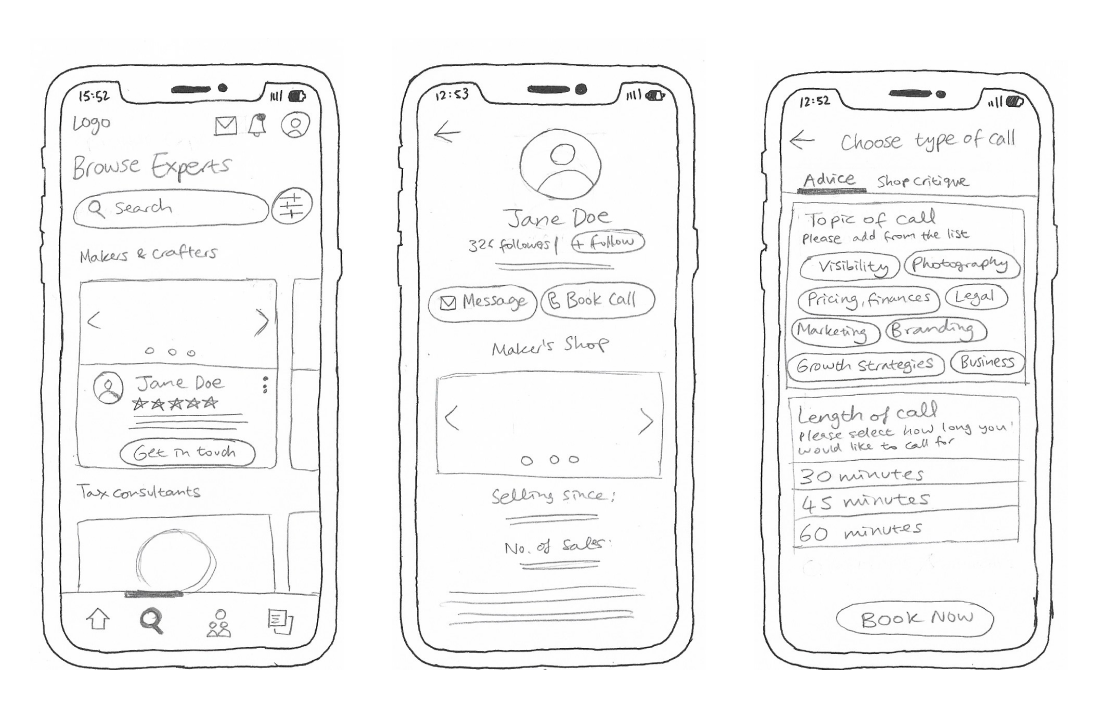 15:52
Logo
Browse Experts
Search
Makers & Crafters
Jane Doe
Get in touch
Tax consultants
12:53
Jane Doe
326 followes | + follow
Message
Book Call
Maker's Shop
Selling since:
No. of sales:
12:52
Choose type of call
Advice Shop critique
Topic of call
Please add from the list
Visibility Photography
Pricing, finances Legal
Marketing Branding
Growth Strategies Business
Length of call
Please select how long you'
would like to call for
30 minutes
45 minutes
60 minutes
Book Now